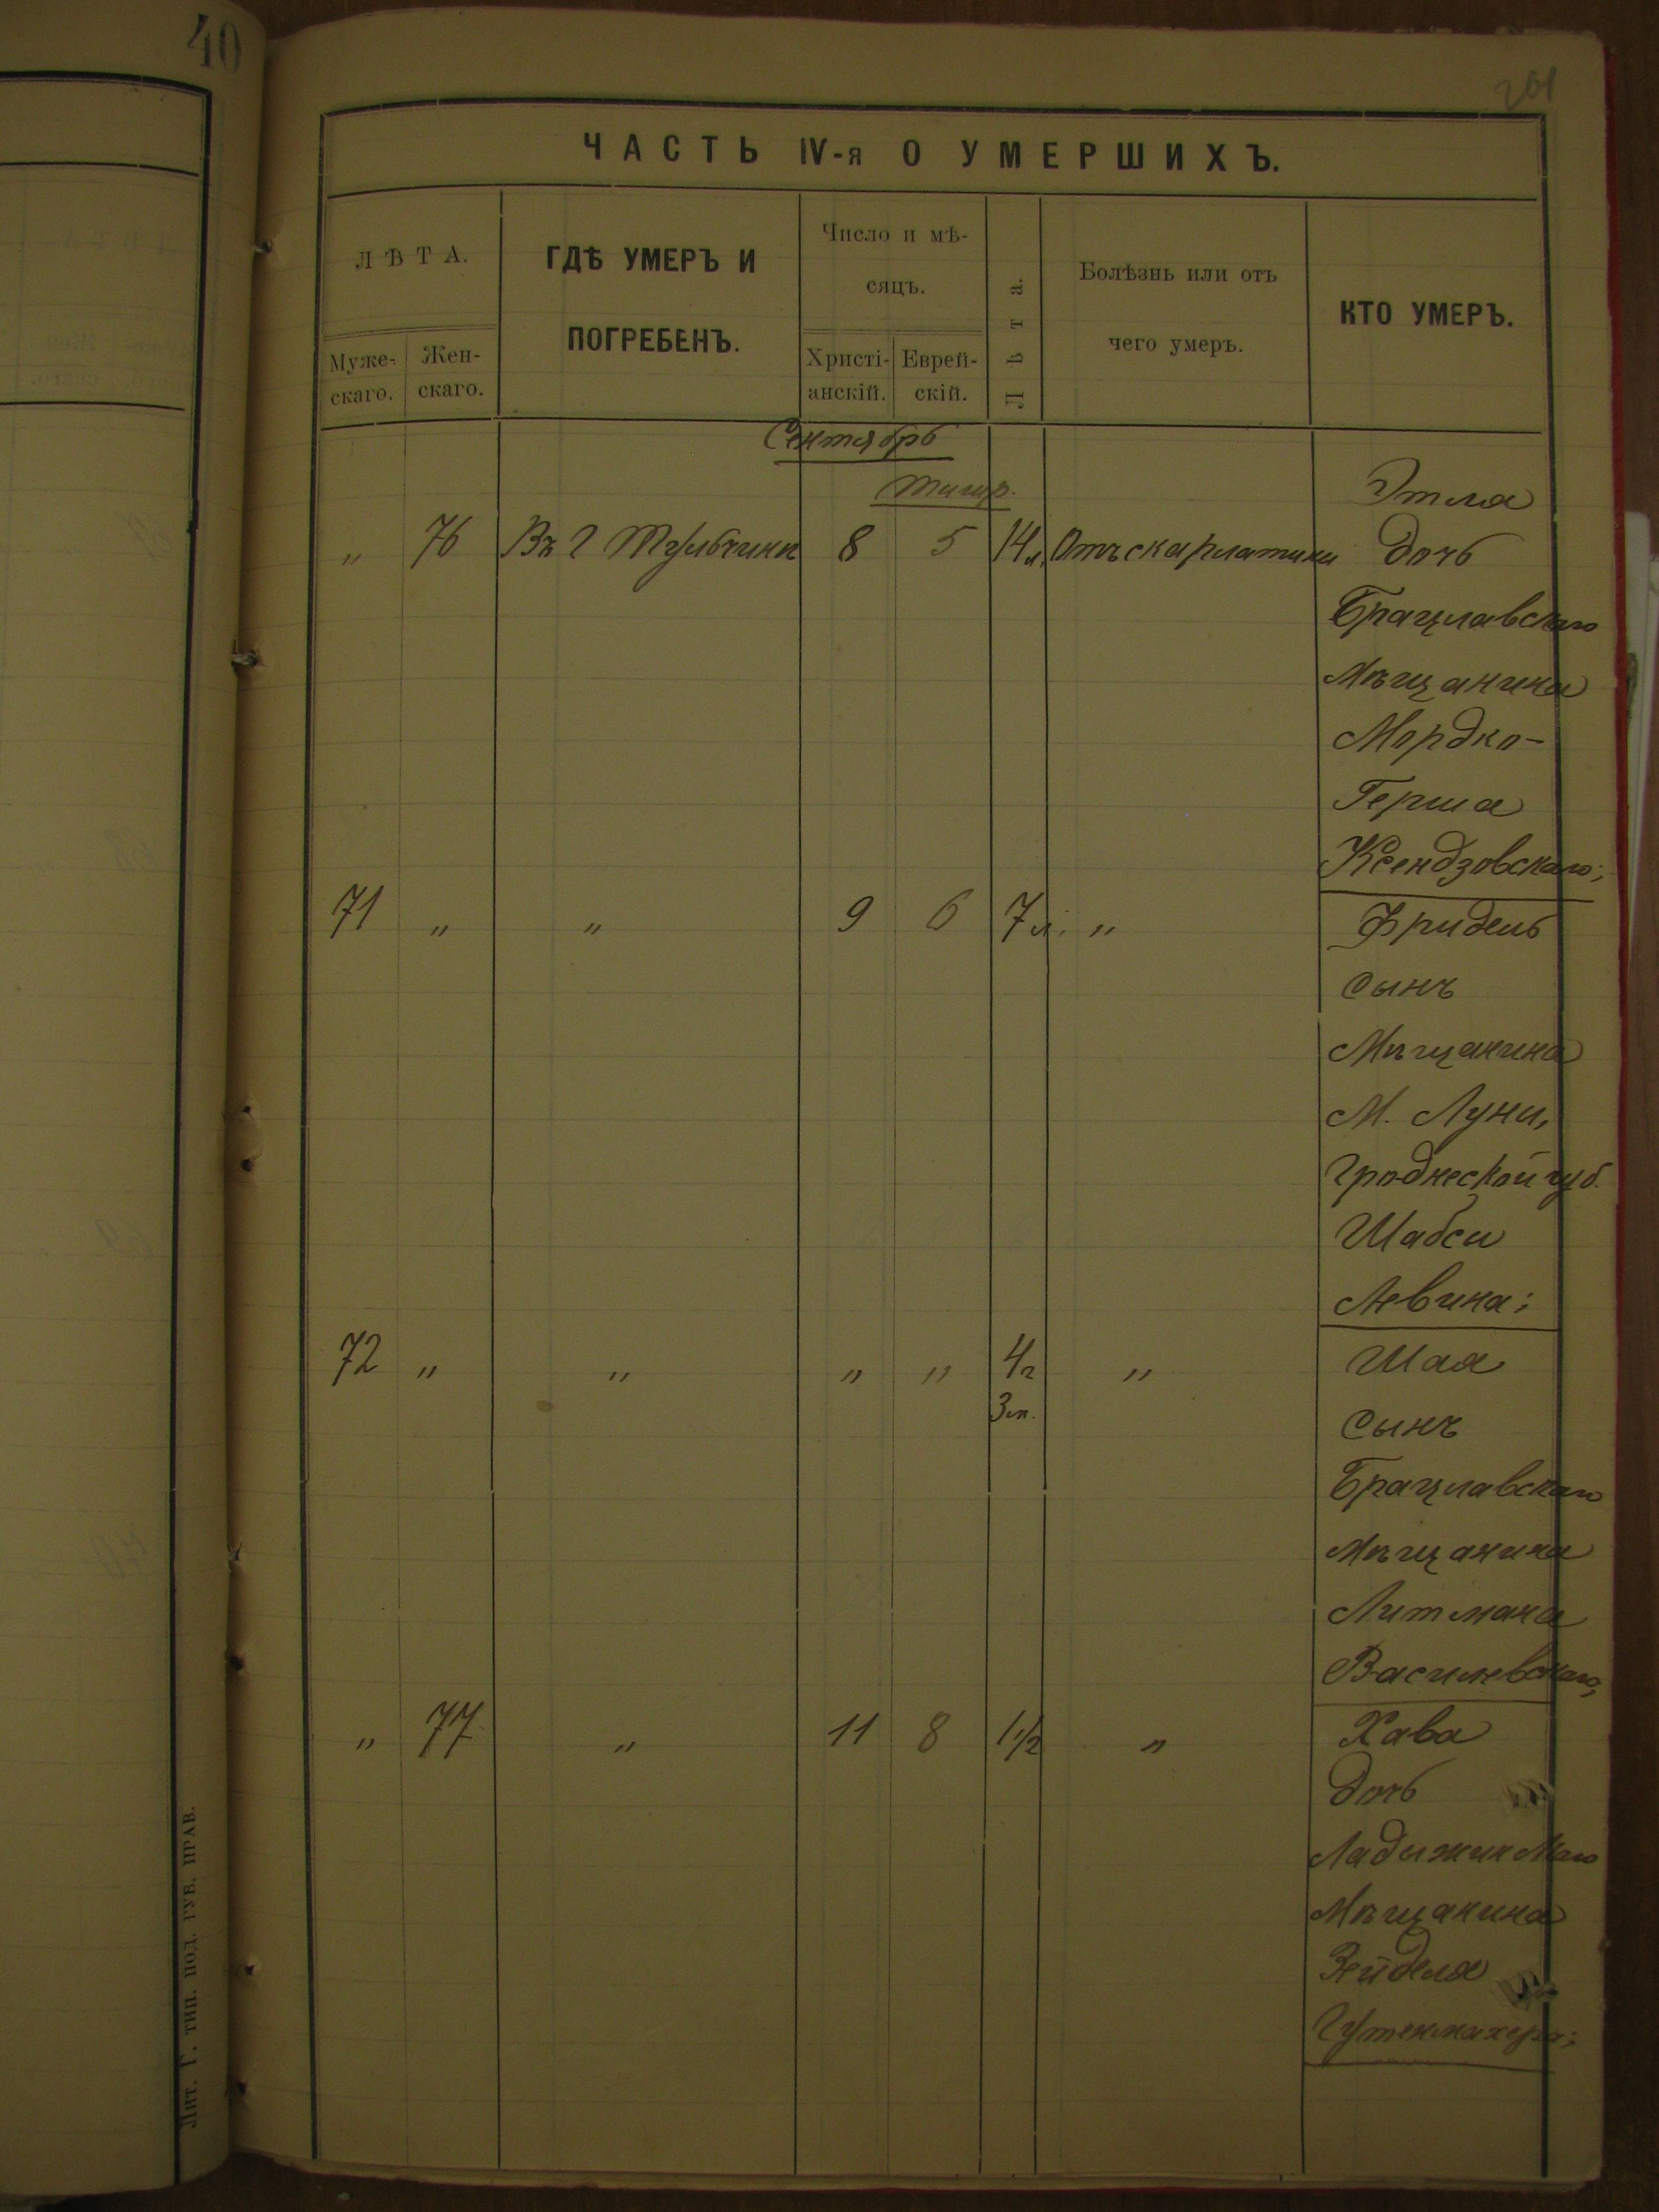 40
201
ЧАСТЬ IV-я О УМЕРШИХЪ.
ЛѢТА.
Муже-
скаго.
Жен-
скаго.
ГДѢ УМЕРЪ И
ПОГРЕБЕНЪ.
Число и мѣ-
сяцъ.
Христі-
анскій.
Еврей-
скій.
Лѣта.
Болѣзнь или отъ
чего умеръ.
КТО УМЕРЪ.
Сентябрь
Тишр.
Этла
„ 76 Въ г Тульчинѣ 8 5 14 л. Отъ скарлатины дочь
Брацлавскаго
Мѣщанина
Мордко-
Герша
Ксендзовскаго;
71 „ „ 9 6 7 л. „ Фридель
сынъ
Мѣщанина
М. Луни,
Гроднеской губ.
Шабси
Левина;
72 „ „ „ „ 4 г „ Шая
3 м. сынъ
Брацлавскаго
Мѣщанина
Литмана
Василевскаго,
„ 77 „ 11 8 1 1/2 „ Хава
дочь
Ладыжинскаго
Мѣщанина
Зейделя
Гутенмахера;
Лит. Г. тип. под. ГУБ. ПРАВ.